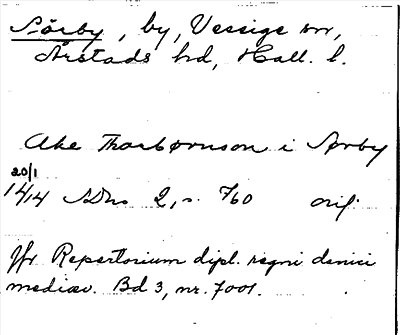 Sörby, by, Vessige sn,
Årstads hd, Hall. l.
Ake Thorbørnson i Sørby
20/1
1414 SDns 2, s. 760 orig.
Jfr Repertorium dipl. regni danici
mediæv. Bd 3, nr. 7001.